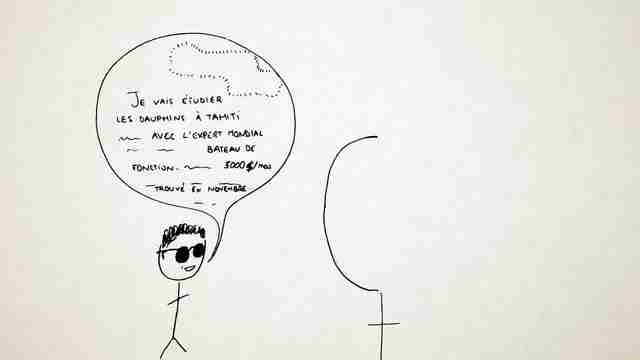 JE VAIS ÉTUDIER
LES DAUPHINS À TAHITI
AVEC L'EXPERT MONDIAL
BATEAU DE
FONCTION. 3000 $/mois
TROUVÉ EN NOVEMBRE